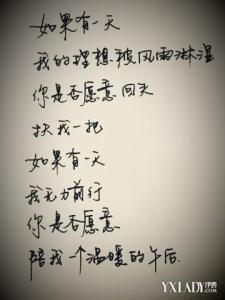 如果有一天
我的理想被风雨淋湿
你是否愿意回头
扶我一把
如果有一天
我无力前行
你是否愿意
陪我一个温暖的午后.
YXLADY伊秀
.COM